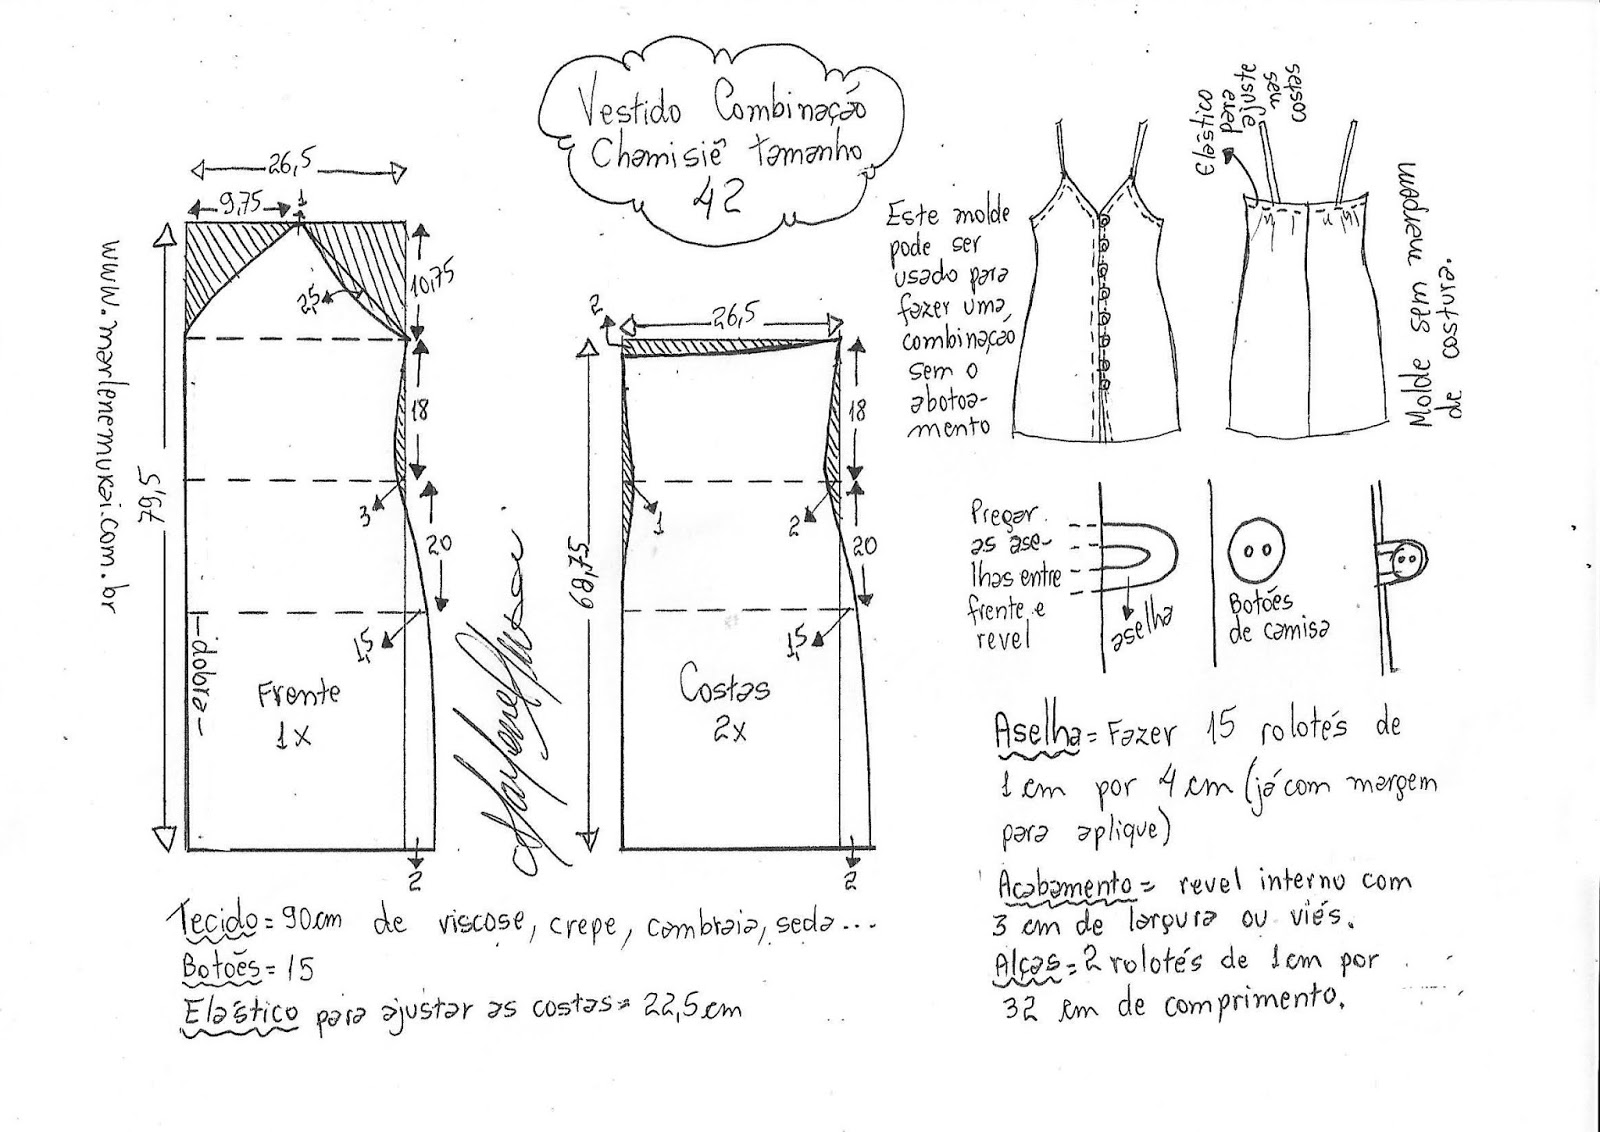 Vestido Combinação
Chamisiê tamanho
42
26,5
9,75
1
10,75
2,5
18
3
20
1,5
79,5
dobra
Frente
1x
2
www.marlenemukai.com.br
2
26,5
18
1
2
20
1,5
68,75
Costas
2x
2
Este molde
pode ser
usado para
fazer uma
combinação
sem o
abotoa-
mento
elástico
para
ajuste
nas
costas
Molde sem margem
de costura.
Pregar
as ase-
lhas entre
frente e
revel
aselha
Botões
de camisa
Aselha = Fazer 15 rolotés de
1 cm por 4 cm (já com margem
para aplique)
Acabamento = revel interno com
3 cm de largura ou viés.
Alças = 2 rolotés de 1 cm por
32 cm de comprimento.
Tecido = 90cm de viscose, crepe, cambraia, seda...
Botões = 15
Elástico para ajustar as costas = 22,5 cm